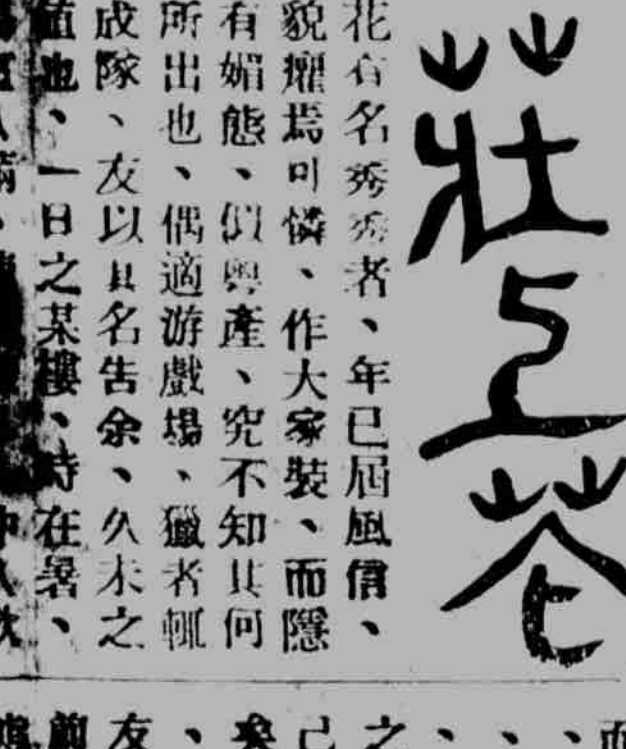 莊上花
花有名秀秀者、年已屆風信、
貌癯焉可憐、作大家裝、而隱
有媚態、似粵產、究不知其何
所出也、偶適游戲場、獵者輒
成隊、友以其名告余、久未之
值也、一日之某樓、時在暑、